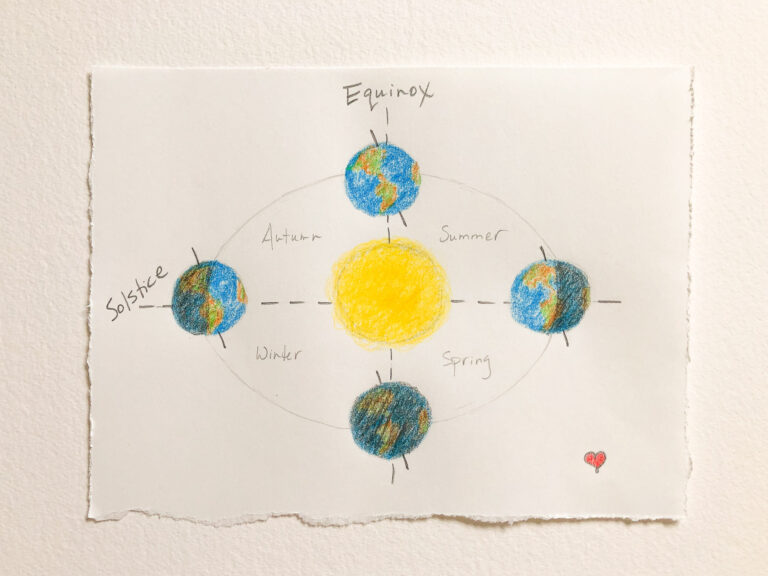 Equinox
Autumn
Summer
Solstice
Winter
Spring